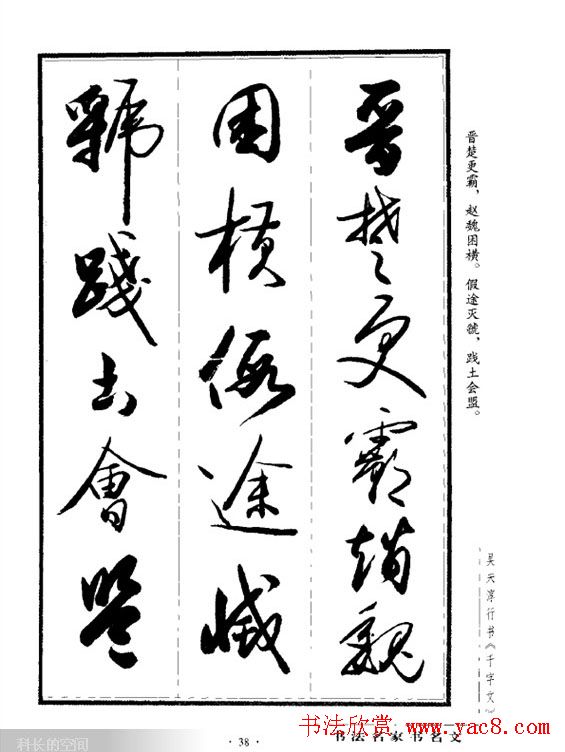 晋楚更霸趙魏
困橫假途滅
虢踐土會盟
晋楚更霸，赵魏困横。假途灭虢，践土会盟。
吴天淳行书《千字文》
· 38 ·
书法名家书名文
书法欣赏 www.yac8.com
科长的空间